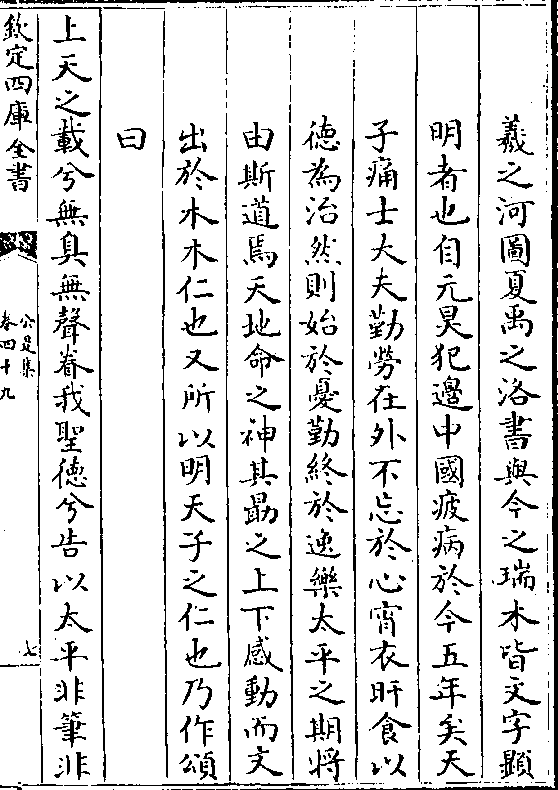 羲之河圖夏禹之洛書與今之瑞木皆文字顯
明者也自元昊犯邊中國疲病於今五年矣天
子痛士大夫勤勞在外不忘於心宵衣旰食以
德為治然則始於憂勤終於逸樂太平之期將
由斯道焉天地命之神其勗之上下感動而文
出於木木仁也又所以明天子之仁也乃作頌
曰
上天之載兮無臭無聲眷我聖德兮告以太平非筆非
欽定四庫全書
公是集
卷四十九
七